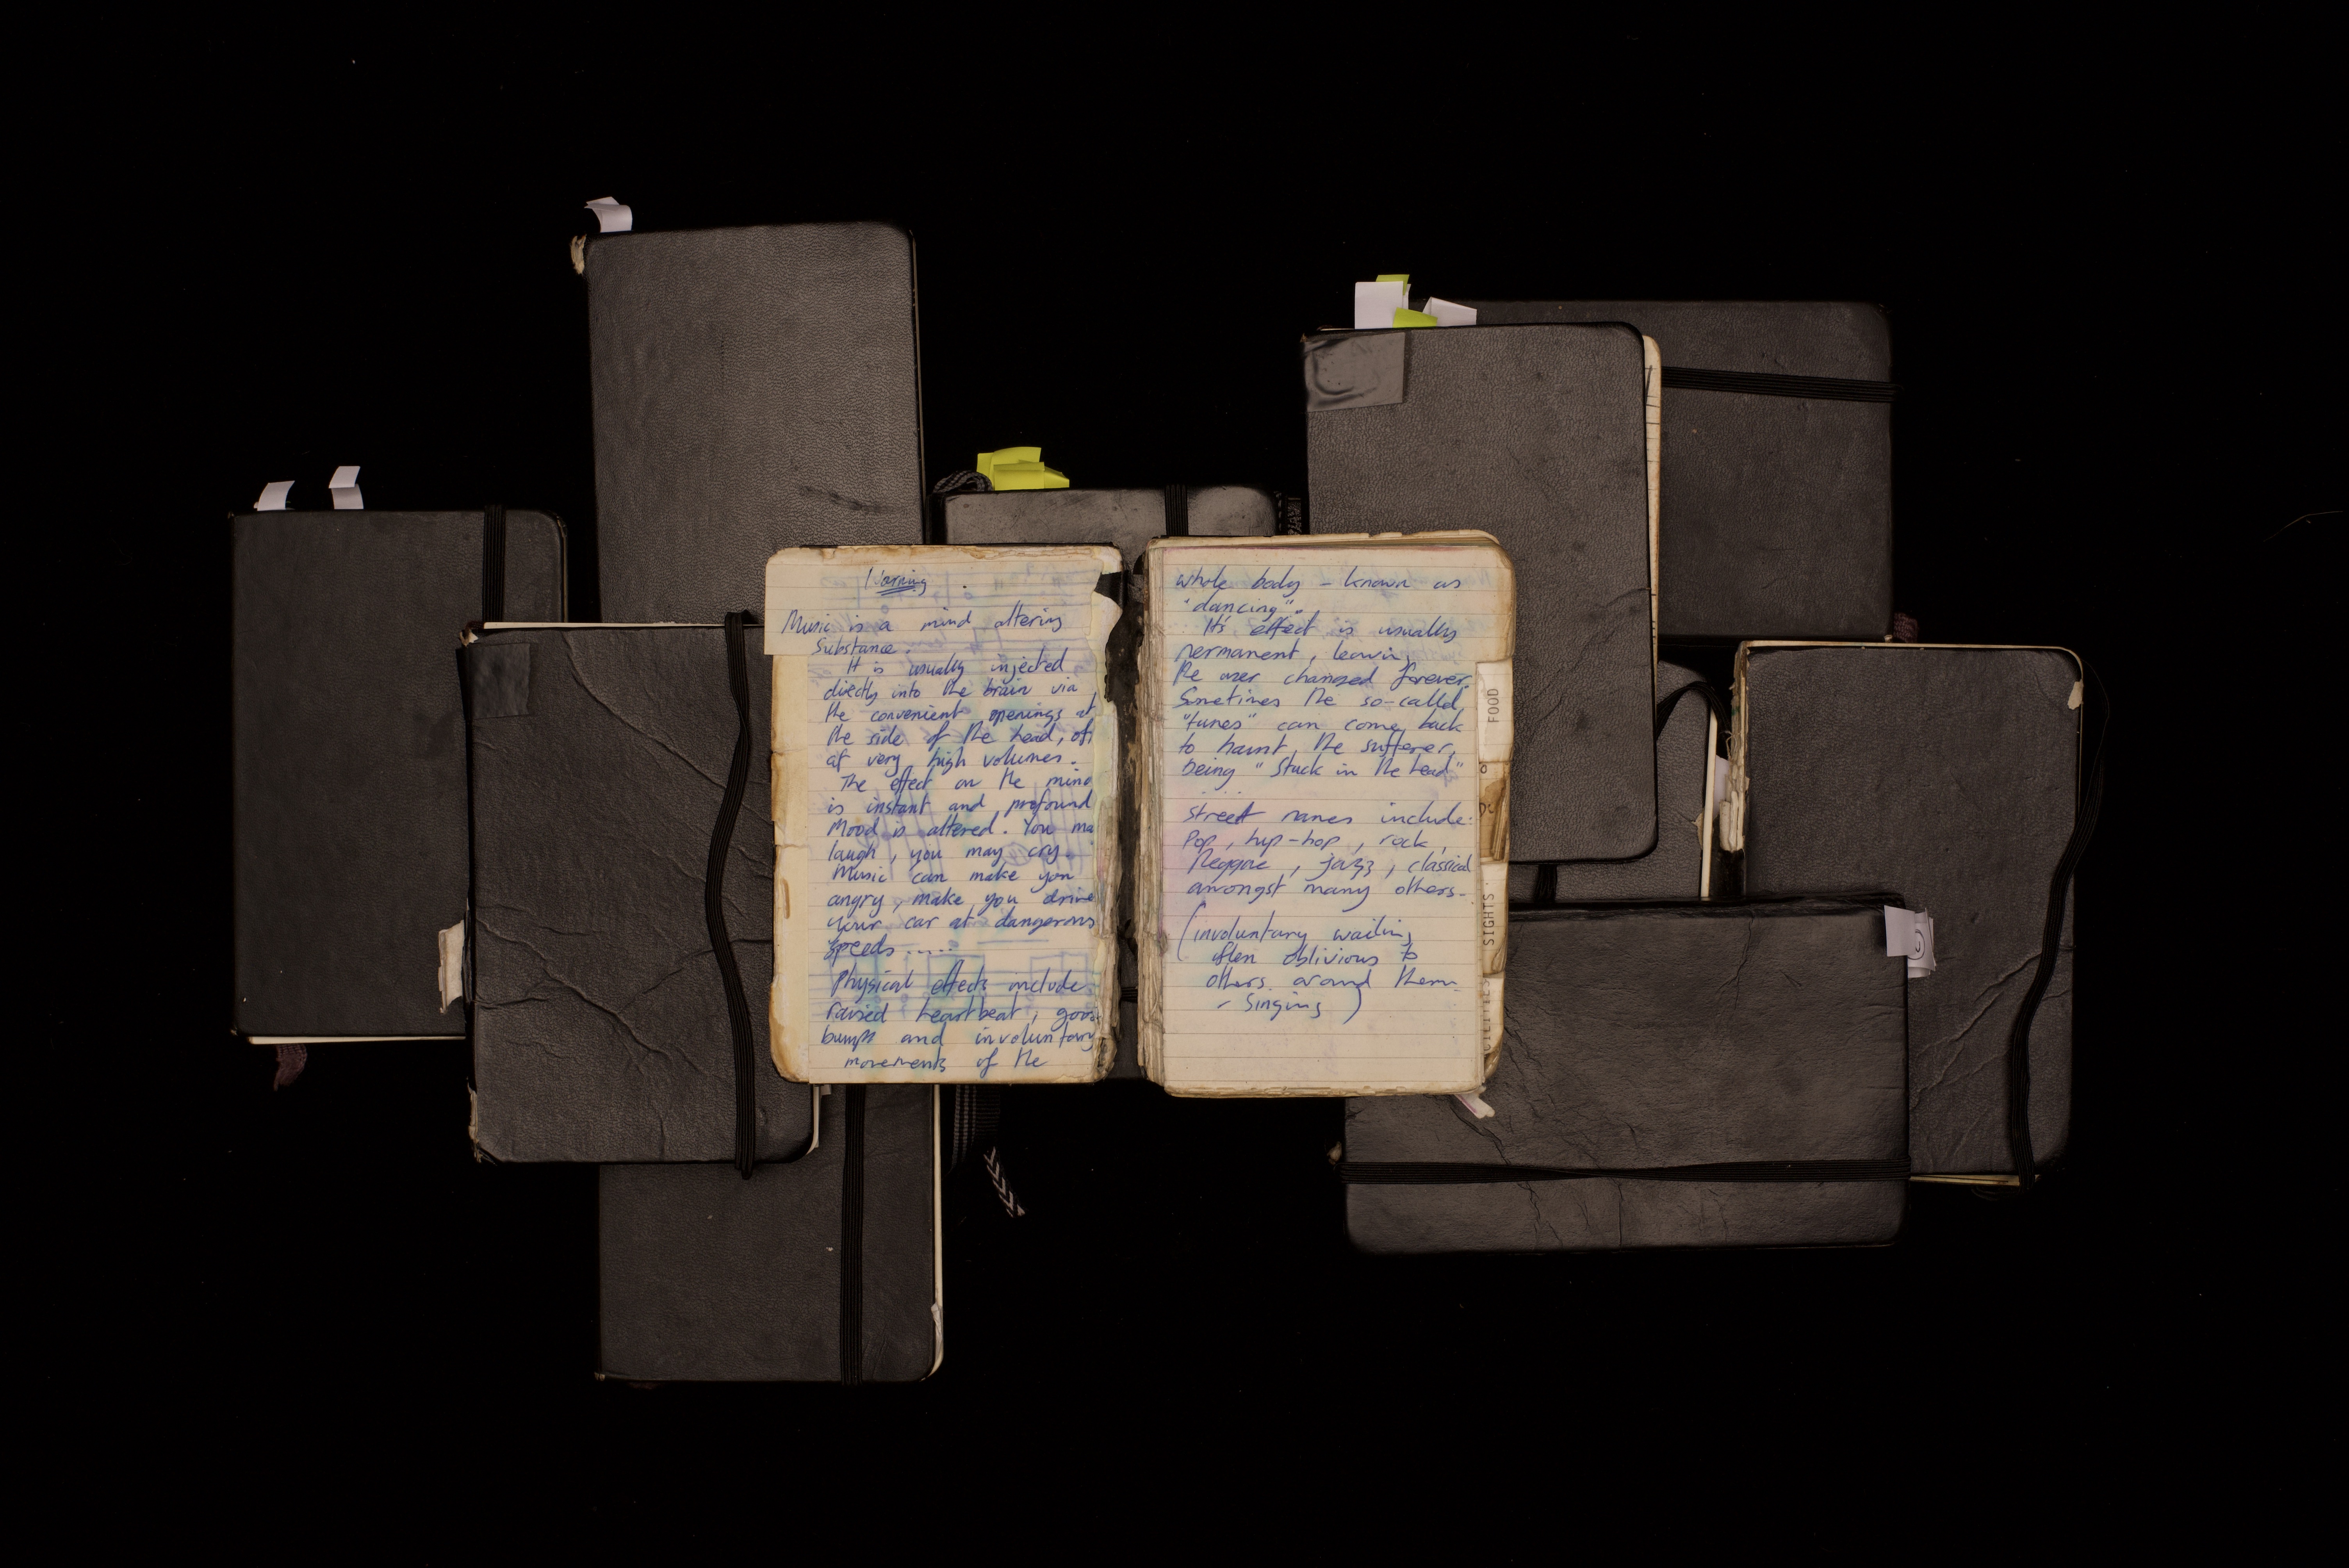 Warning
Music is a mind altering
Substance.
It is usually injected
directly into the brain via
the convenient openings at
the side of the head, oft
at very high volumes.
The effect on the mind
is instant and profound
Mood is altered. You ma
laugh, you may cry.
Music can make you
angry, make you drive
your car at dangerous
speeds.....
Physical effects include
raised heartbeat, goos
bumps and involuntary
movements of the
whole body - known as
"dancing".
It's effect is usually
permanent, leavin
the user changed forever.
Sometimes the so-called
"tunes" can come back
to haunt the sufferer,
being "stuck in the head"
...
Street names include:
Pop, hip-hop, rock,
Reggae, jazz, classical
amongst many others.
(involuntary wailing
often oblivious to
others around them
- Singing)
FOOD
SIGHTS